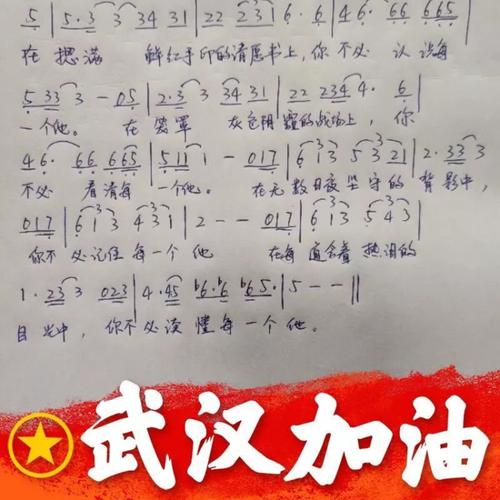 5 | 5· 3 3 34 31 | 22 231 6· 6 | 46· 66 665 |
在 摁满 鲜红手印的请愿书上,你 不必 认识每
5 33 3 - 05 | 2·3 3 34 31 | 22 234 4· 6 |
一个他。 在 笼罩 灰色阴霾的战场上, 你
46· 66 665 | 511 1 - 017 | 613 5321 | 2·33 3
不必 看清每 一个他。 在无数日夜坚守的 背影中,
017 | 613 431 | 2 - - 017 | 613 543 |
你不必记住每一个他 在每 饱含着 热泪的
1·23 3 023 | 4·45 b6·b6 b65· | 5 - - ||
目光中, 你不必读 懂每一个他。
武汉加油